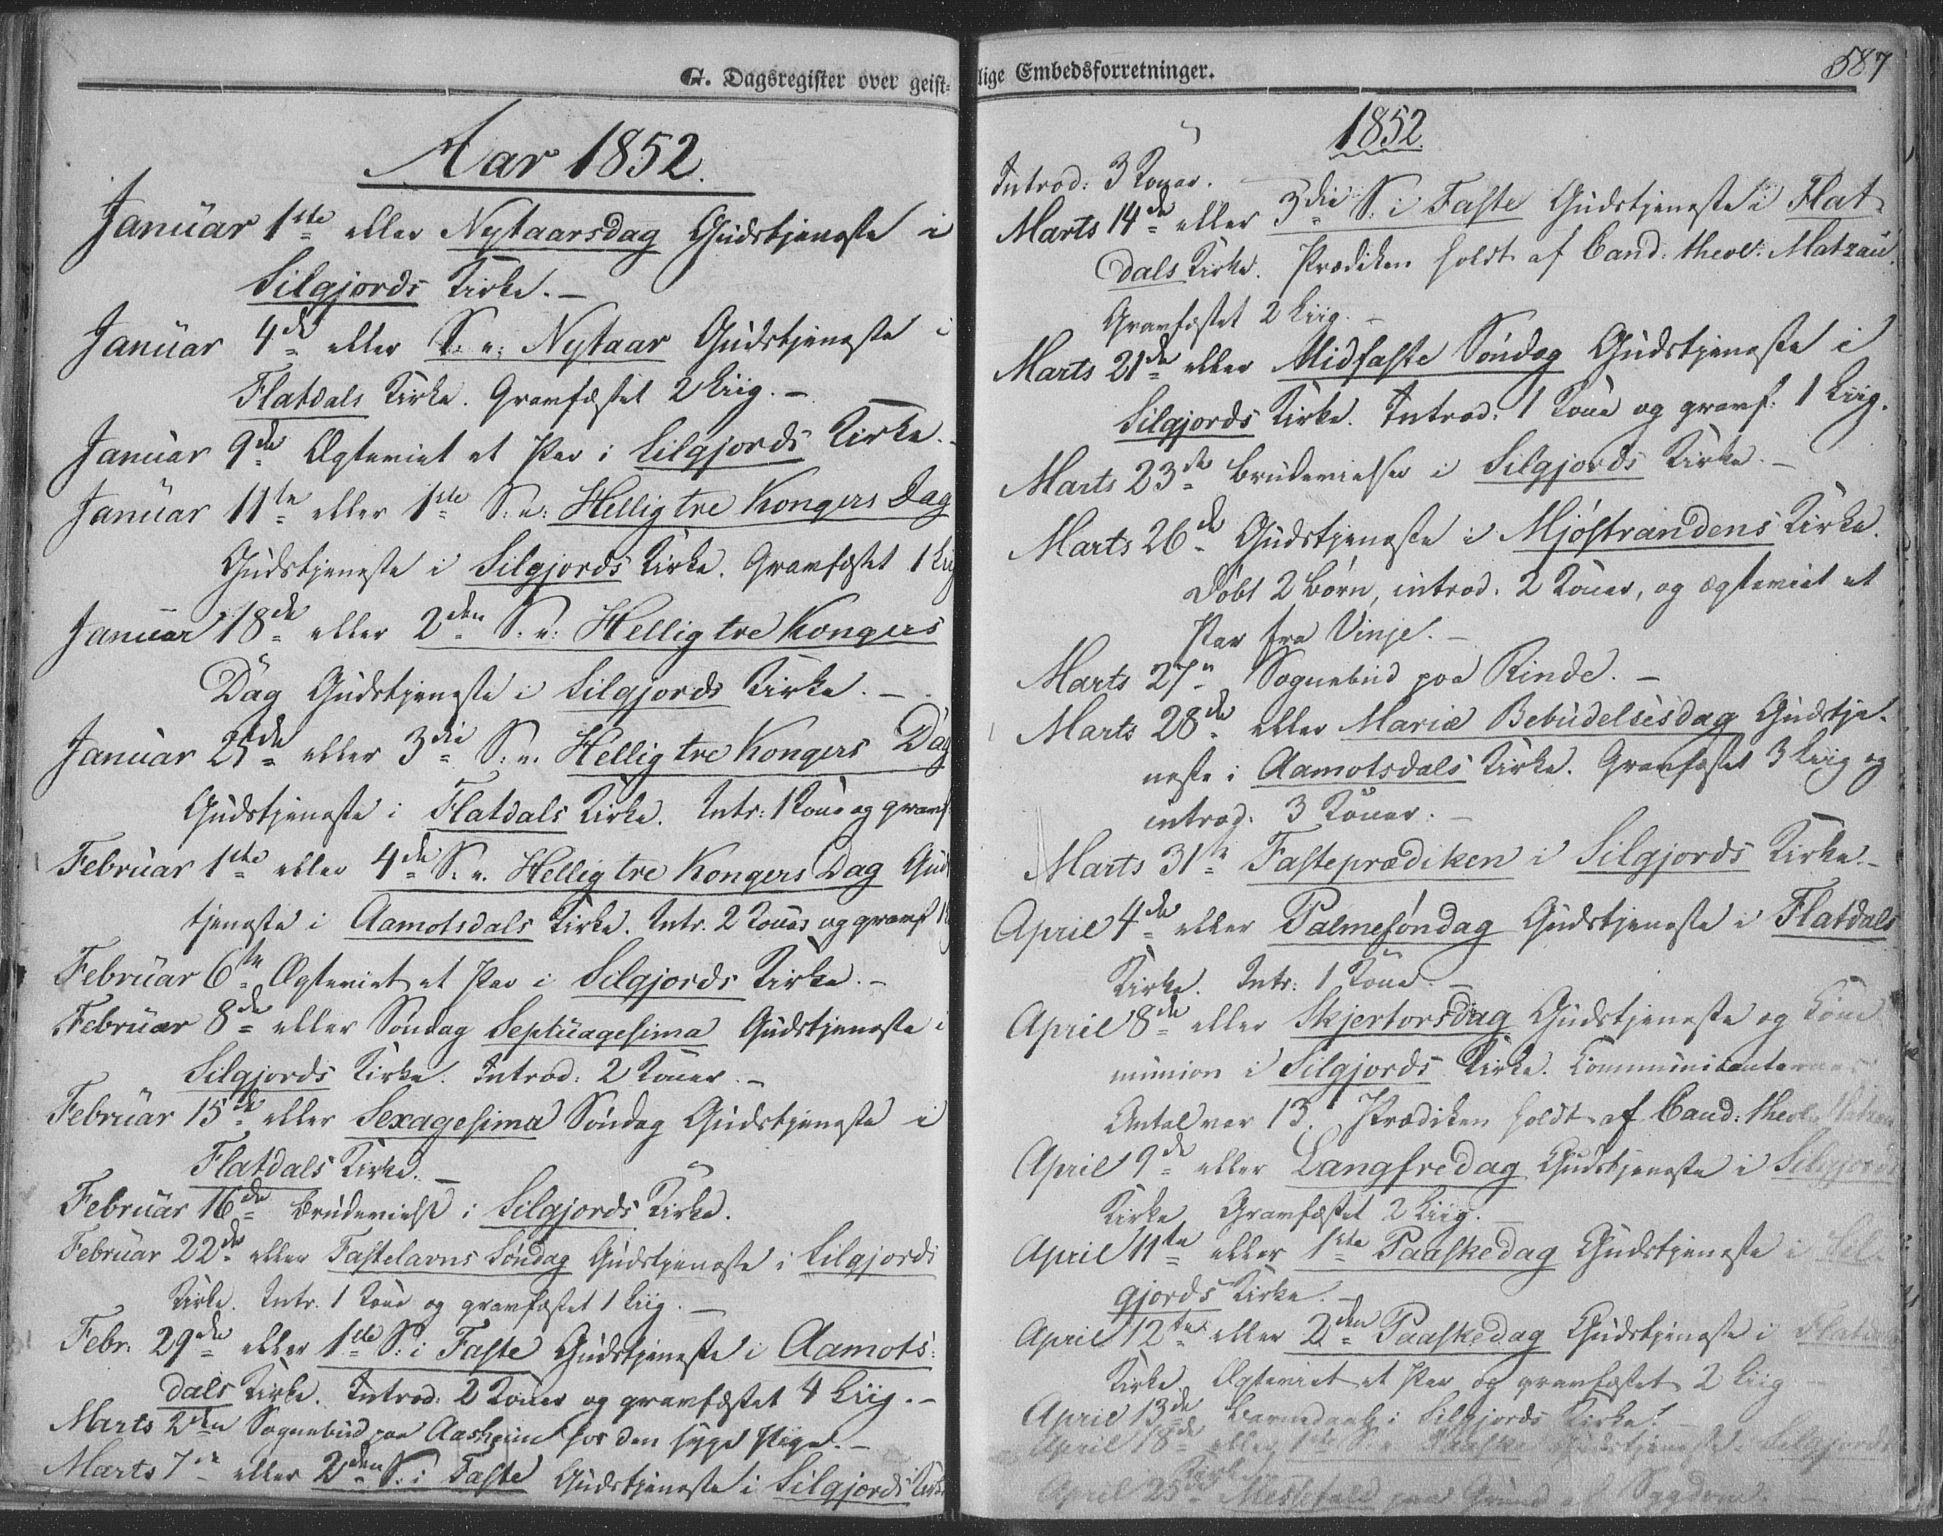 G. Dagsregister over geist-
Aar 1852.
Januar 1ste eller Nytaarsdag Gudstjeneste i
Silgjords Kirke. –
Januar 4de eller S. e: Nytaar Gudstjeneste i
Flatdals Kirke. Gravfæstet 2 Liig. –
Januar 9de Ægteviet et Par i Silgjords Kirke. –
Januar 11te eller 1ste S: e: Hellig tre Kongers Dag
Gudstjeneste i Silgjords Kirke. Gravfæstet 1 Liig
Januar 18de eller 2den S. e: Hellig tre Kongers
Dag Gudstjeneste i Silgjords Kirke. –
Januar 25de eller 3die S: e. Hellig tre Kongers Dag
Gudstjeneste i Flatdals Kirke. Intr: 1 Kone og gravf
Februar 1ste eller 4de S. e. Hellig tre Kongers Dag Gud
tjeneste i Aamotsdals Kirke. Intr. 2 Koner og gravf 1
Februar 6te Ægteviet et Par i Silgjords Kirke. –
Februar 8de eller Søndag Septuagesima Gudstjeneste i
Silgjords Kirke. Introd: 2 Koner. –
Februar 15de eller Sexagesima Søndag Gudstjeneste i
Flatdals Kirke. –
Februar 16de Brudevielse i Silgjords Kirke.
Februar 22de eller Fastelavns Søndag Gudstjeneste i Silgjords
Kirke. Intr. 1 Kone og gravfæstet 1 Liig. –
Febr. 29de eller 1ste S. i Faste Gudstjeneste i Aamots:
dals Kirke. Introd: 2 Koner og gravfæstet 4 Liig. –
Marts 2den Sognebud paa Aasheim hos den syge Pige. –
Marts 7de eller 2den S. i Faste Gudstjeneste i Silgjords Kirke
lige Embedsforretninger.
587
1852.
Introd: 3 Koner.
Marts 14de eller 3die S. i Faste Gudstjeneste i Flat-
dals Kirke. Prædiken holdt af Cand: theol: Matzau.
Gravfæstet 2 Liig. –
Marts 21de eller Midfaste Søndag Gudstjeneste i
Silgjords Kirke. Introd: 1 Kone og gravf: 1 Liig.
Marts 23de Brudevielse i Silgjords Kirke. –
Marts 26de Gudstjeneste i Mjøstrandens Kirke.
Døbt 2 Børn, introd. 2 Koner, og ægteviet et
Par fra Vinje. –
Marts 27de Sognebud paa Rinde. –
Marts 28de eller Mariæ Bebudelsesdag Gudstje-
neste i Aamotsdals Kirke. Gravfæstet 3 Liig og
introd. 3 Koner. –
Marts 31te Fasteprædiken i Silgjords Kirke. –
April 4de eller Palmesøndag Gudstjeneste i Flatdals
Kirke. Intr: 1 Kone. –
April 8de eller Skjertorsdag Gudstjeneste og Com
munion i Silgjords Kirke. Communicanternes
Antal var 13. Prædiken holdt af Cand: theol: Matzau
April 9de eller Langfredag Gudstjeneste i Silgjords
Kirke Gravfæstet 2 Liig. –
April 11te eller 1ste Paaskedag Gudstjeneste i Sil-
gjords Kirke. –
April 12te eller 2den Paaskedag Gudstjeneste i Flatdals
Kirke. Ægteviet et Par og gravfæstet 2 Liig –
April 13de Barnedaab i Silgjords Kirke. –
April 18de eller 1ste S. e. Paaske Gudstjeneste i Silgjords
Kirke
April 25de Messefald paa Grund af Sygdom. –